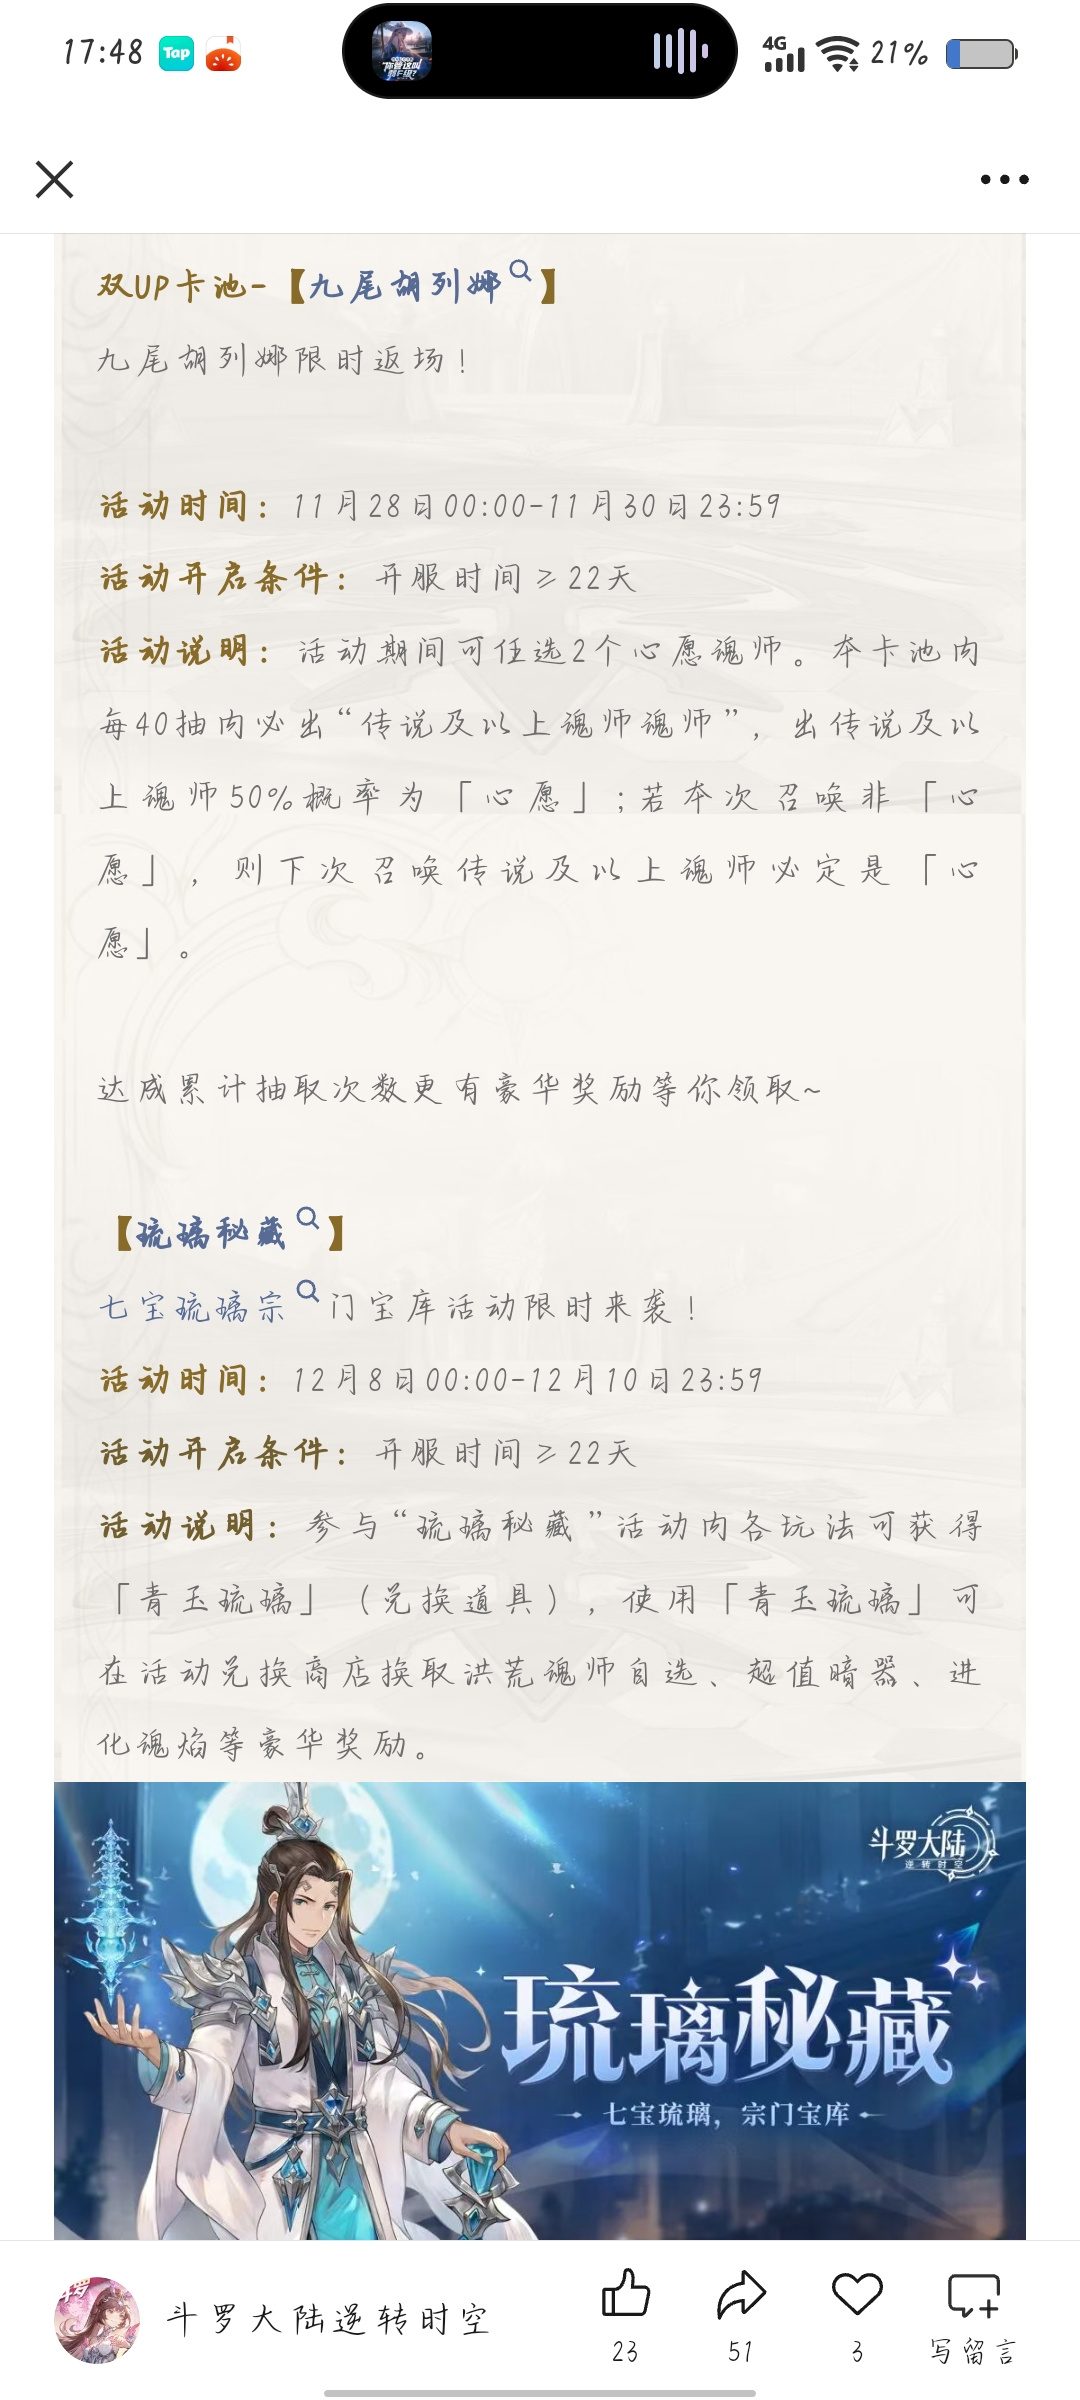 17:48
Tap
你管这叫
4G
21%
双UP卡池-【九尾胡列娜】
九尾胡列娜限时返场！
活动时间：11月28日00:00-11月30日23:59
活动开启条件：开服时间≥22天
活动说明：活动期间可任选2个心愿魂师。本卡池内
每40抽内必出“传说及以上魂师魂师”，出传说及以
上魂师50%概率为「心愿」;若本次召唤非「心
愿」，则下次召唤传说及以上魂师必定是「心
愿」。
达成累计抽取次数更有豪华奖励等你领取~
【琉璃秘藏】
七宝琉璃宗门宝库活动限时来袭！
活动时间：12月8日00:00-12月10日23:59
活动开启条件：开服时间≥22天
活动说明：参与“琉璃秘藏”活动内各玩法可获得
「青玉琉璃」（兑换道具），使用「青玉琉璃」可
在活动兑换商店换取洪荒魂师自选、超值暗器、进
化魂焰等豪华奖励。
斗罗大陆
逆转时空
琉璃秘藏
七宝琉璃，宗门宝库
斗罗
斗罗大陆逆转时空
23
51
3
写留言